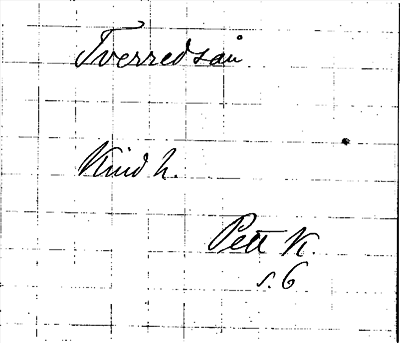 Tverredsån
Kind h.
Pett K.
s. 6